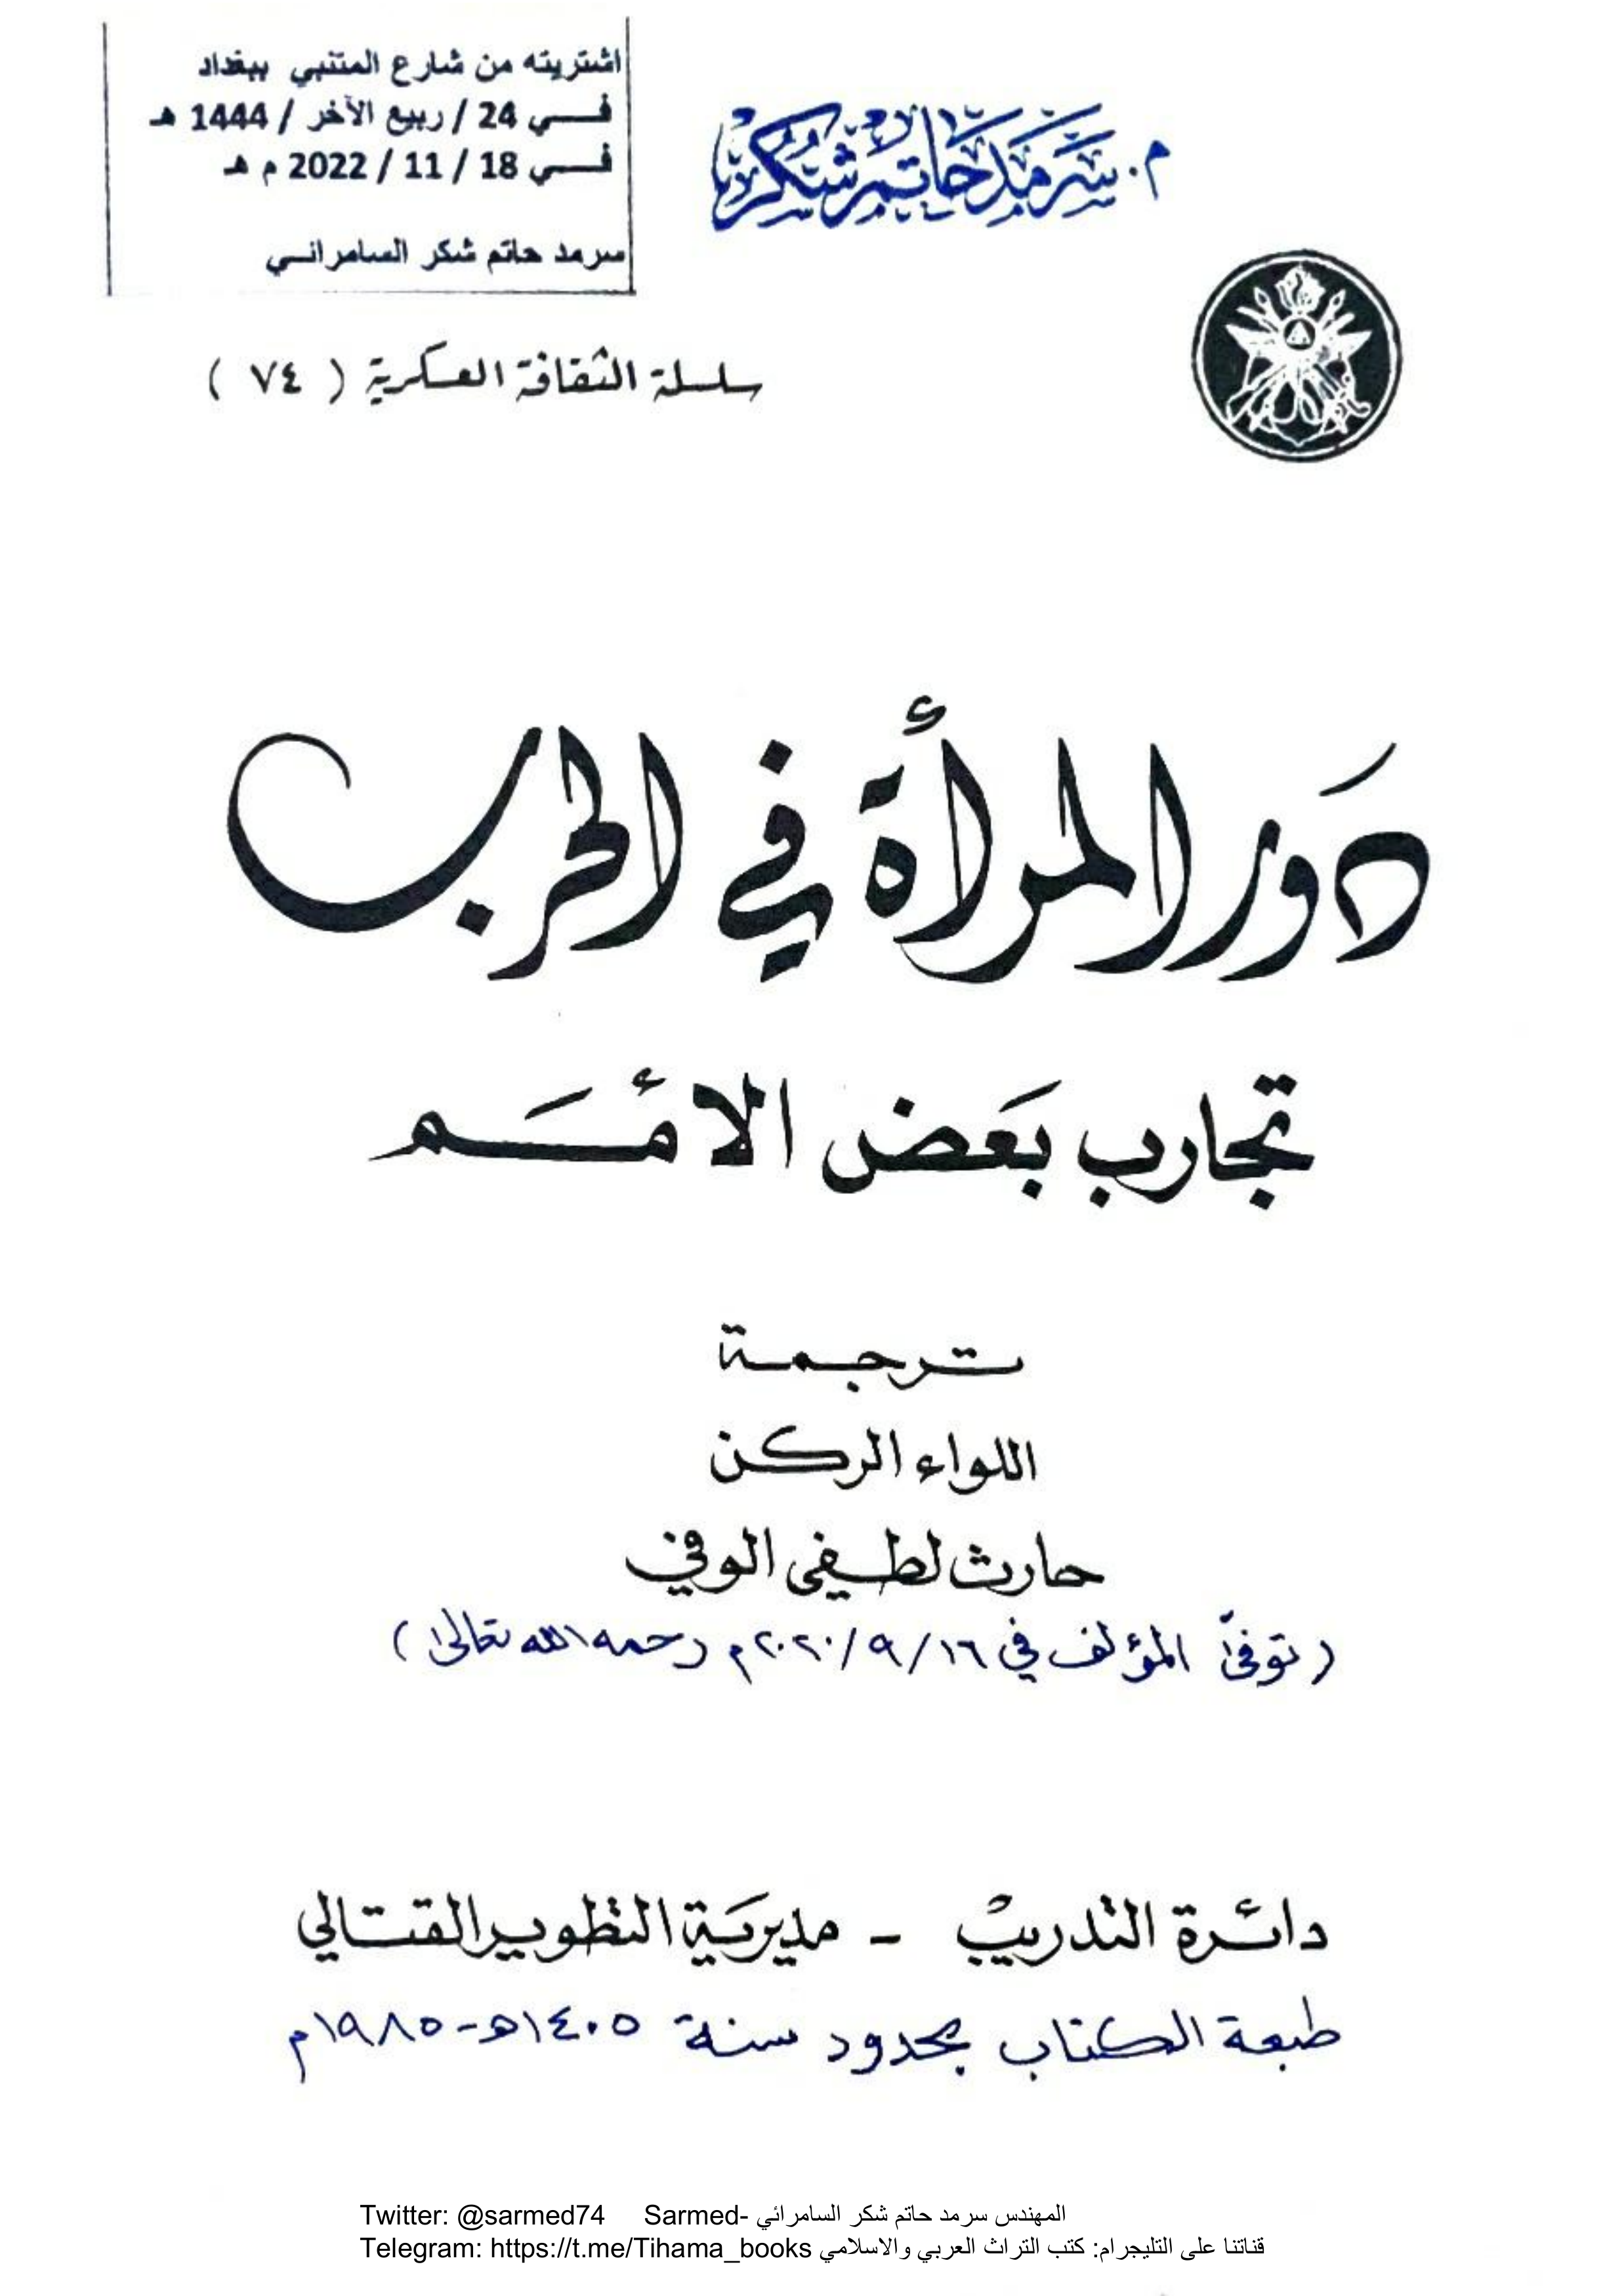 اشتريته من شارع المتنبي ببغداد
فـــي 24 / ربيع الآخر / 1444 هـ
فـــي 18 / 11 / 2022 م هـ
سرمد حاتم شكر السامرائـي
م. سَرمَد حَاتم شُكر
سلسلة الثقافة العسكرية ( ٧٤ )
دَور المرأة في الحرب
تجارب بَعض الأمَـم
ترجمة
اللواء الركن
حارث لطفي الوفي
( توفيّ المؤلف في ١٦/ ٩ /٢٠٢٠م رحمه الله تعالى )
دائرة التدريب - مديرية التطوير القتالي
طبعة الكتاب بحدود سنة ١٤٠٥هـ - ١٩٨٥م
Twitter: @sarmed74 Sarmed- المهندس سرمد حاتم شكر السامرائي
Telegram: https://t.me/Tihama_books قناتنا على التليجرام: كتب التراث العربي والاسلامي